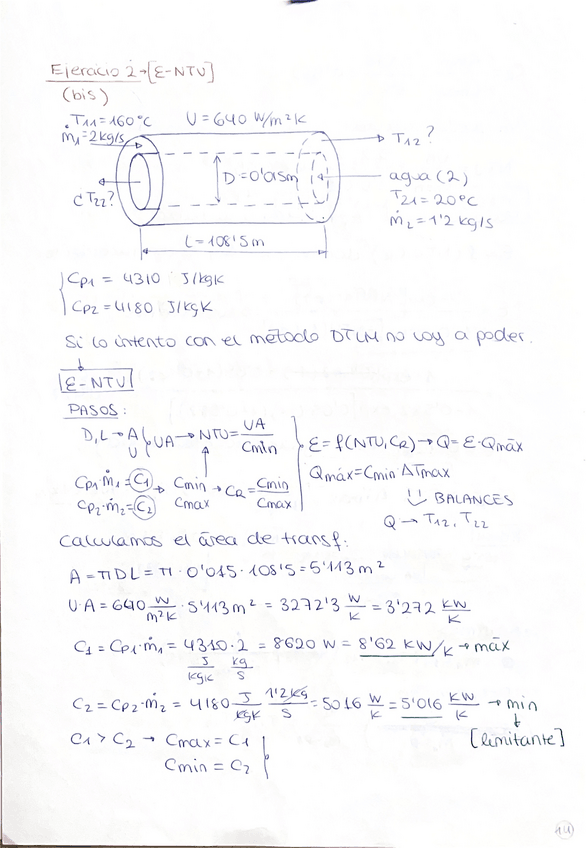 Ejercicio 2→[ε-NTU]
(bis)
T11=160ºC U=640 W/m²K
ṁ1=2kg/s
T12?
D=0'015m
agua(2)
T21=20ºC
ṁ2=1'2 kg/s
¿T22?
L=108'5m
Cp1 = 4310 J/kgK
Cp2=4180 J/kgK
Si lo intento con el método DTLM no voy a poder.
ε-NTU
PASOS:
D,L→A
U
UA→NTU=UA/Cmin
ε=f(NTU,CR)→Q=ε·Qmáx
Cp1·ṁ1=C1
Cp2·ṁ2=C2
→ Cmin
Cmax
→CR=Cmin/Cmax
Qmáx=Cmin·ΔTmax
BALANCES
Q→T12,T22
Calculamos el área de transf:
A=πDL=π·0'015·108'5=5'113m²
U·A=640 W/m²K·5'113m²=3272'3 W/K=3'272 KW/K
C1=Cp1·ṁ1=4310·2=8620 W=8'62 KW/K→máx
J/kgK kg/s
C2=Cp2·ṁ2=4180 J/kgK 1'2kg/s=5016 W/K=5'016 KW/K→min
[limitante]
C1>C2→Cmax=C1
Cmin=C2
14